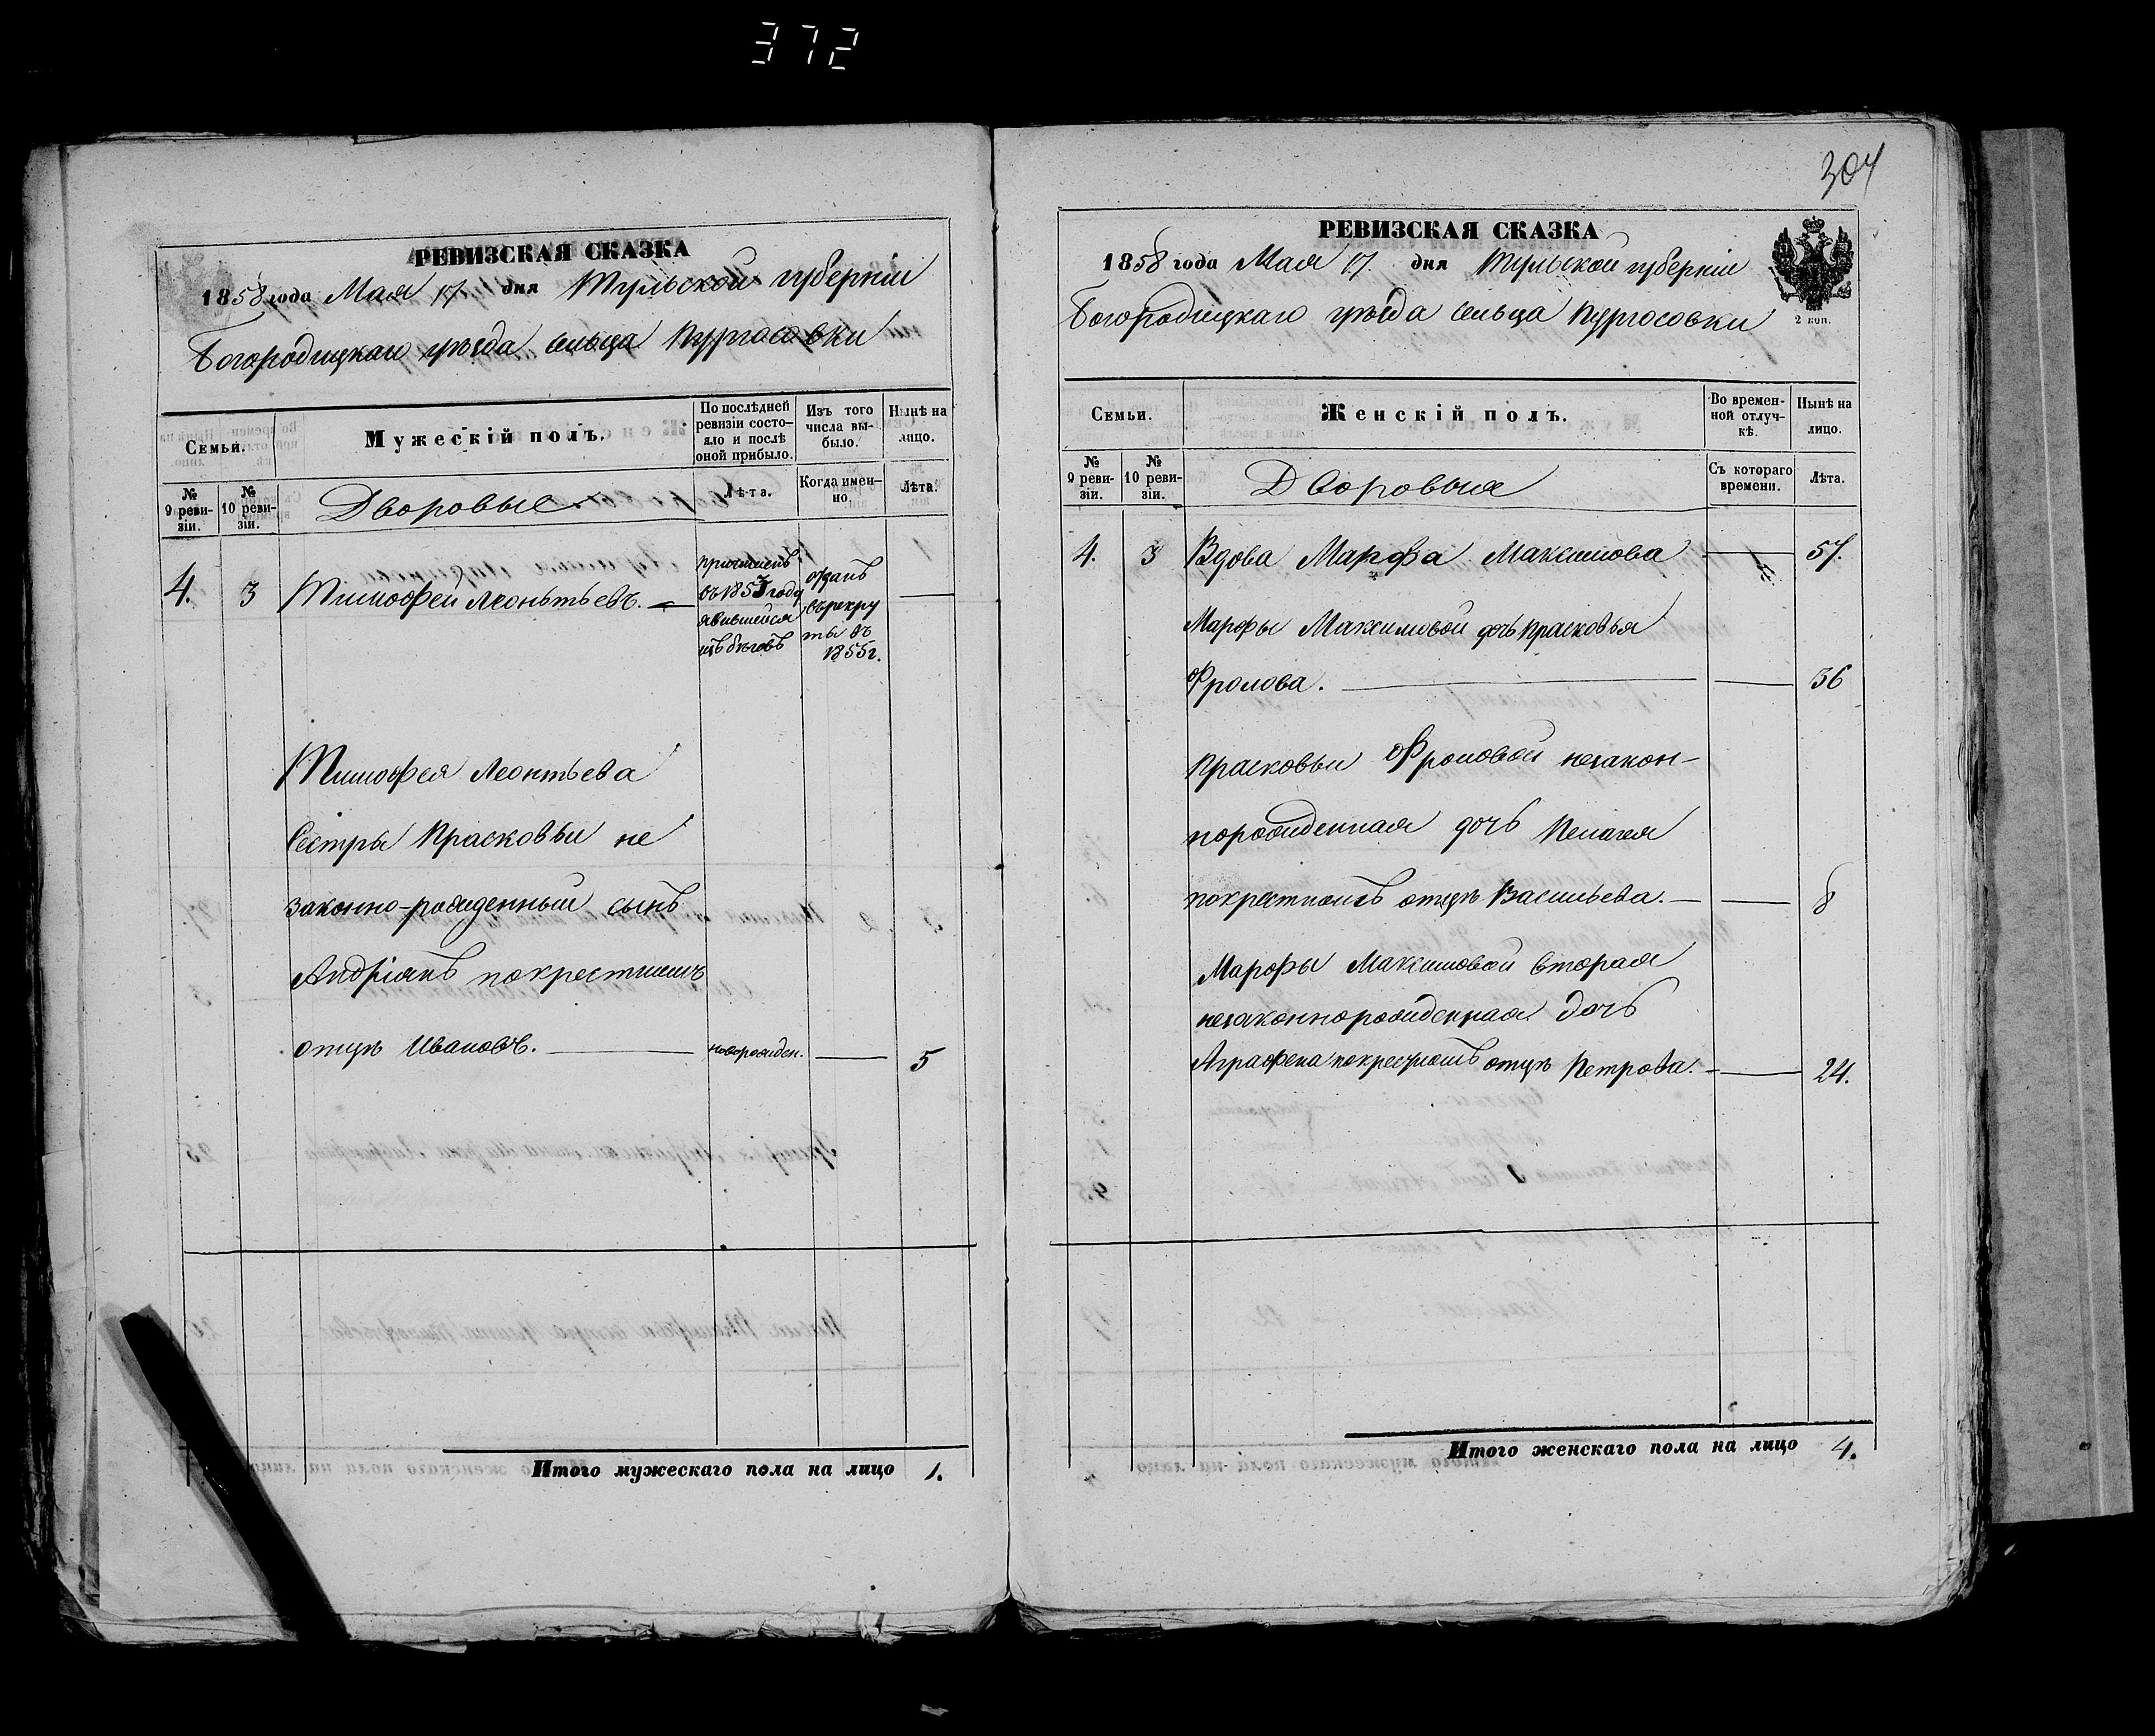 372
304
РЕВИЗСКАЯ СКАЗКА
1858 года Мая 17 дня Тульской губерніи
Богородицкаго уѣзда сельца Пургасовки
Семьи.
Мужескій полъ.
По послѣдней ревизіи состояло и послѣ оной прибыло.
Изъ того числа выбыло.
Нынѣ на лицо.
№ 9 ревизіи.
№ 10 ревизіи.
Дворовые.
Лѣта.
Когда именно.
Лѣта.
4. 3 Тимофей Леонтьевъ. —
въ 1853 году
явившейся
изъ бѣговъ
отданъ
въ рекру
ты въ
1855 г.
Тимофея Леонтьева
Сестры Прасковьи не
законно-рожденный сынъ
Андріянъ по крестному
отцу Ивановъ. — новорожден. — 5
Итого мужескаго пола на лицо 1.
РЕВИЗСКАЯ СКАЗКА
1858 года Мая 17. дня Тульской губерніи
Богородицкаго уѣзда сельца Пургасовки
2 коп.
Семьи.
Женскій полъ.
Во временной отлучкѣ.
Нынѣ на лицо.
№ 9 ревизіи.
№ 10 ревизіи.
Дворовыя
Съ котораго времени.
Лѣта.
4. 3 Вдова Марфа Максимова — 57.
Марфы Максимовой дочь Прасковья
Фролова. — 36
Прасковьи Фроловой незакон-
норожденная дочь Пелагея
по крестномъ отцѣ Васильева. — 8
Марфы Максимовой вторая
незаконнорожденная дочь
Аграфена по крестномъ отцѣ Петрова. — 24.
Итого женскаго пола на лицо 4.